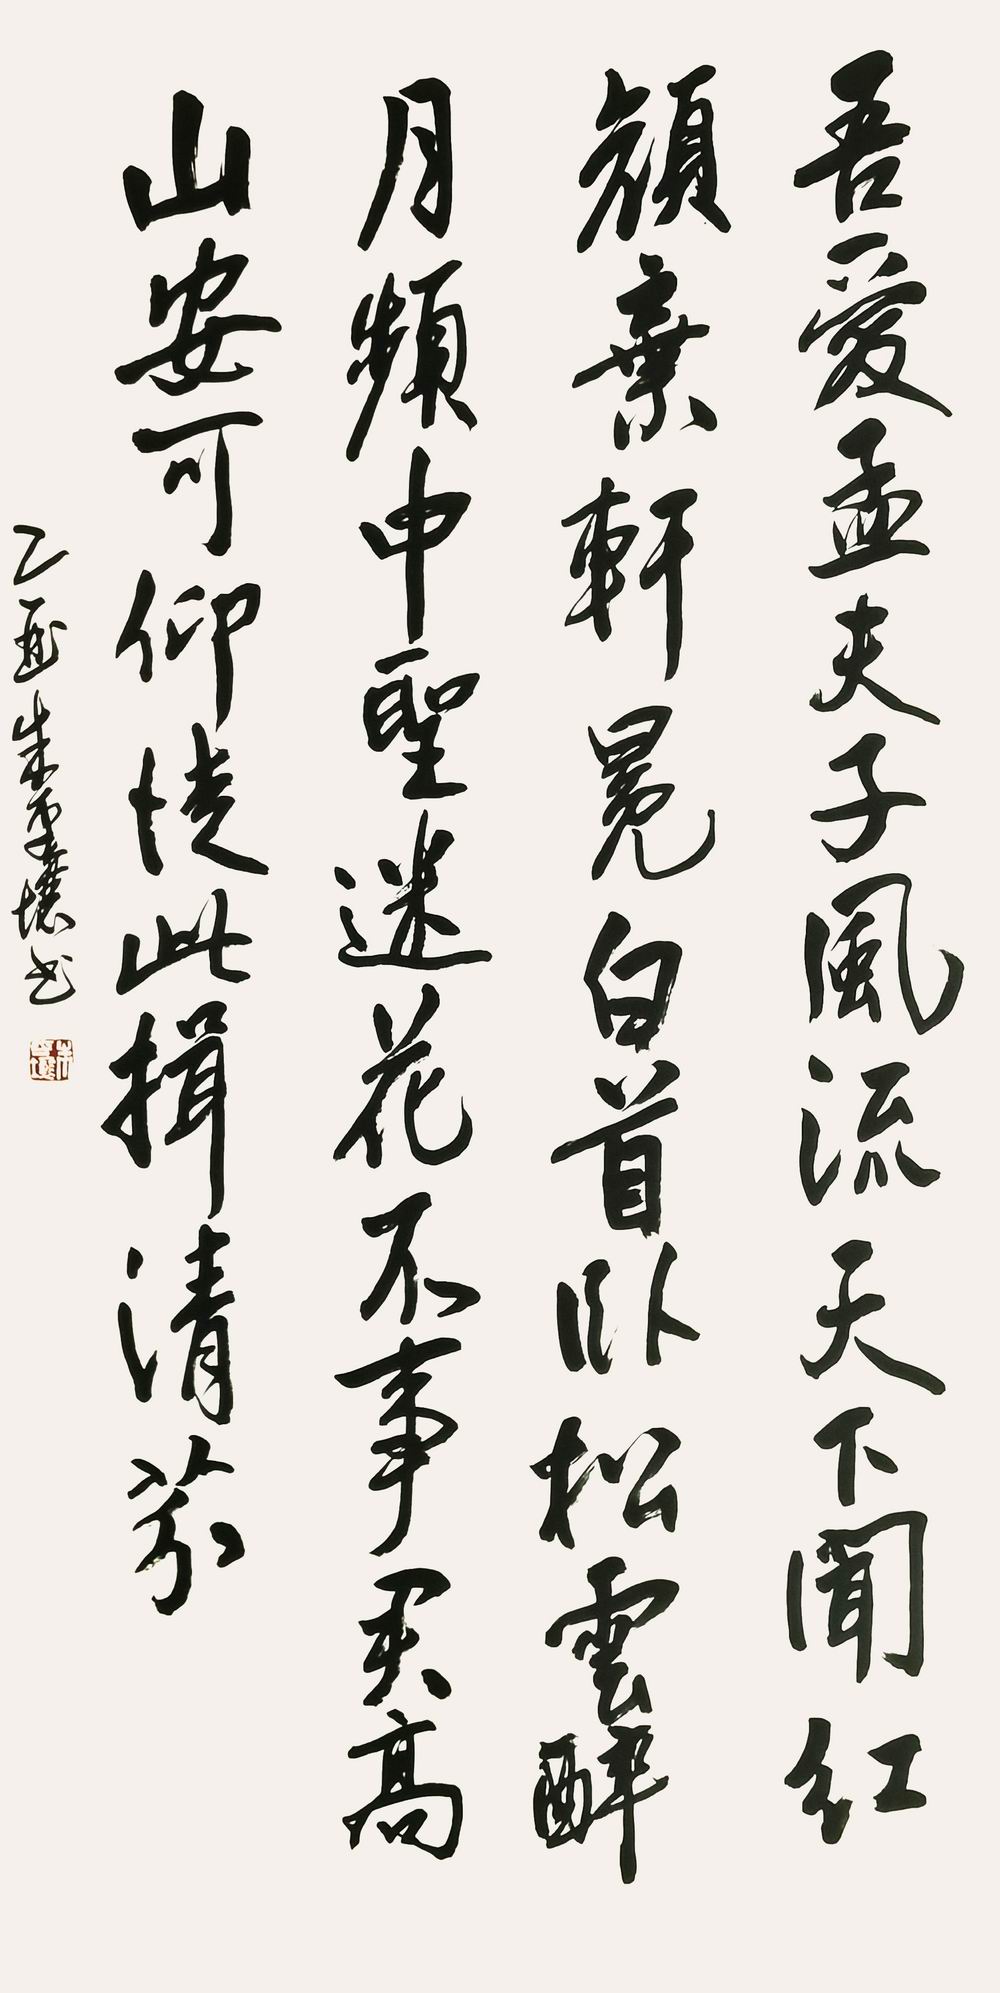 吾愛孟夫子風流天下聞紅
顏棄軒冕白首臥松雲醉
月頻中聖迷花不事君高
山安可仰徒此揖清芬
乙酉朱書